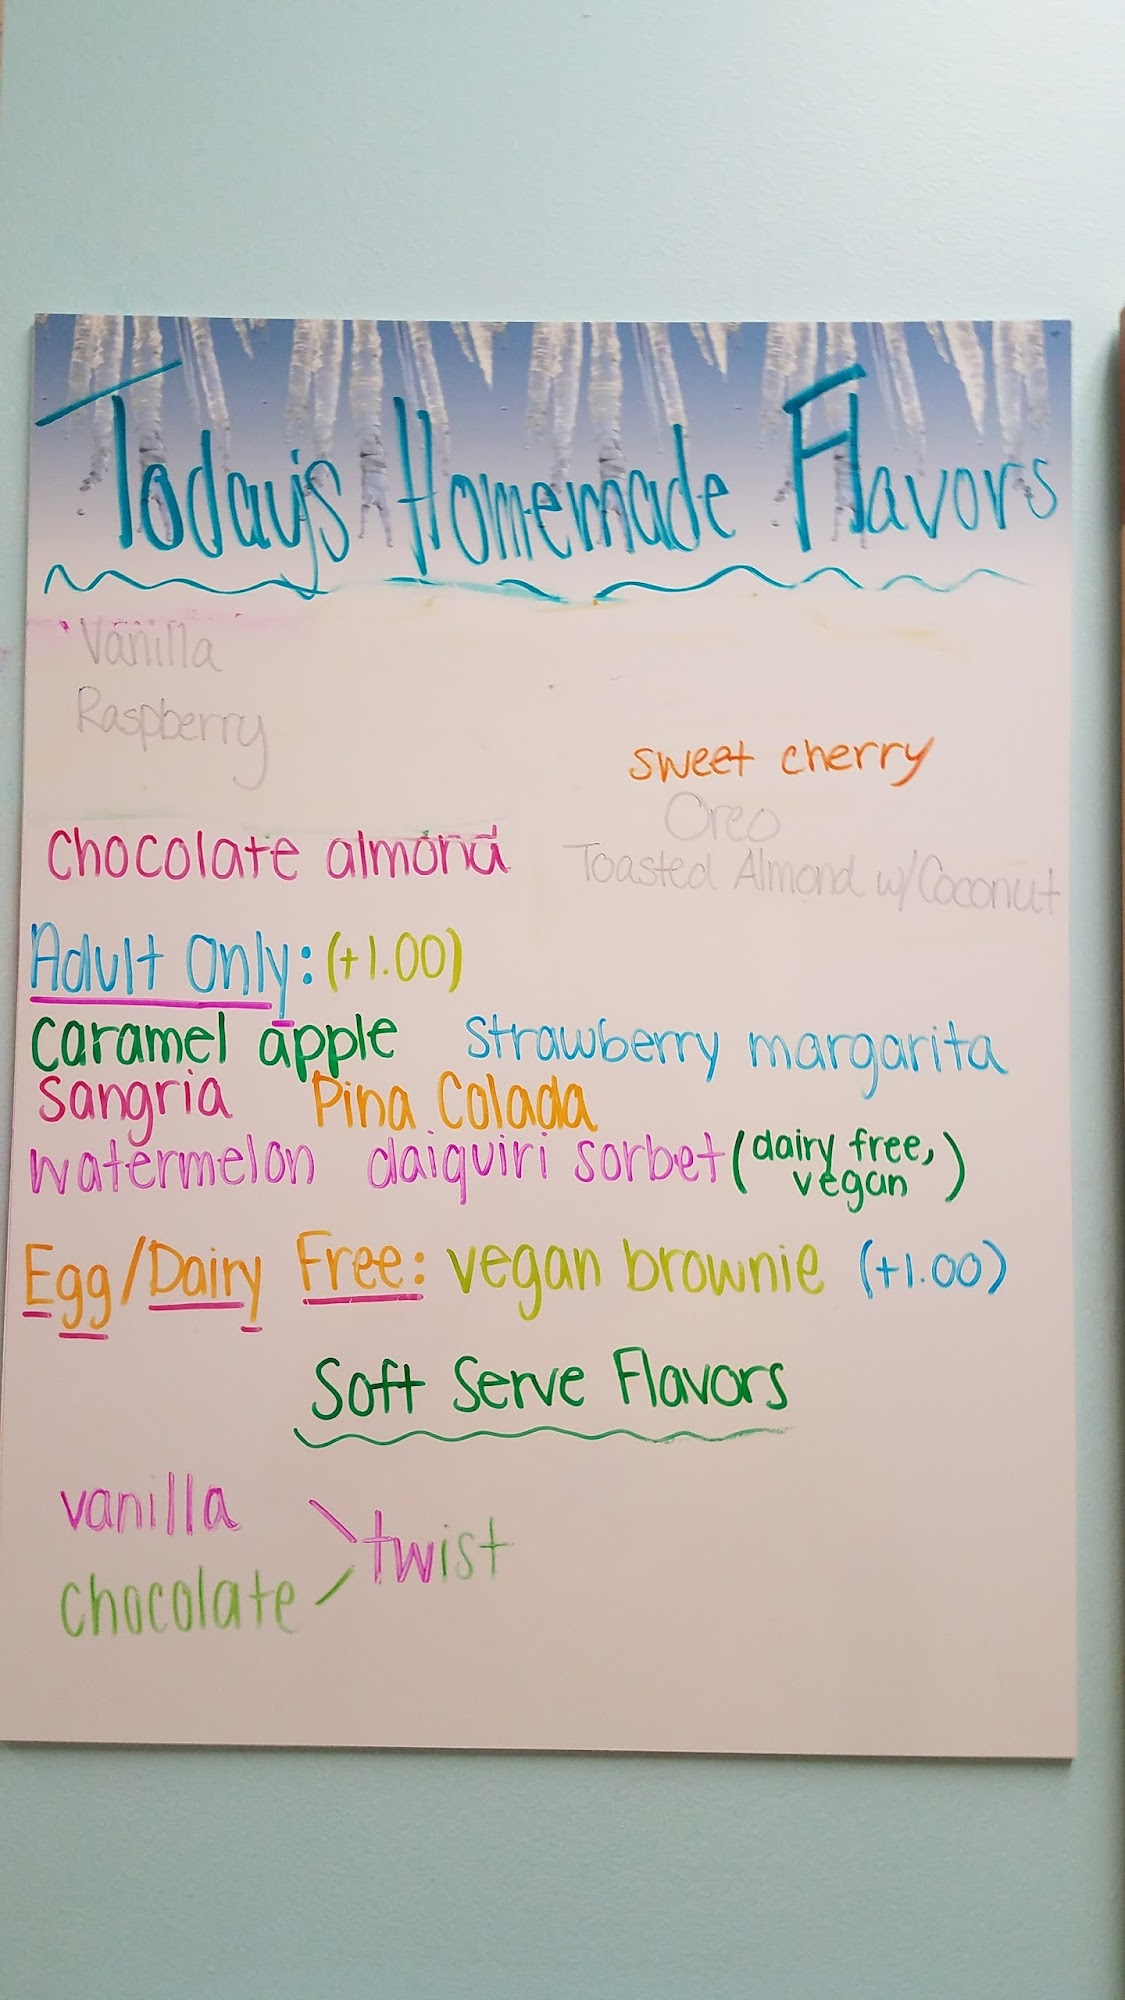 Today's Homemade Flavors
Vanilla
Raspberry
sweet cherry
Oreo
Chocolate almond
Toasted Almond w/Coconut
Adult Only: (+1.00)
caramel apple strawberry margarita
sangria Pina Colada
watermelon daiquiri sorbet (dairy free, vegan)
Egg/Dairy Free: vegan brownie (+1.00)
Soft Serve Flavors
vanilla
twist
chocolate